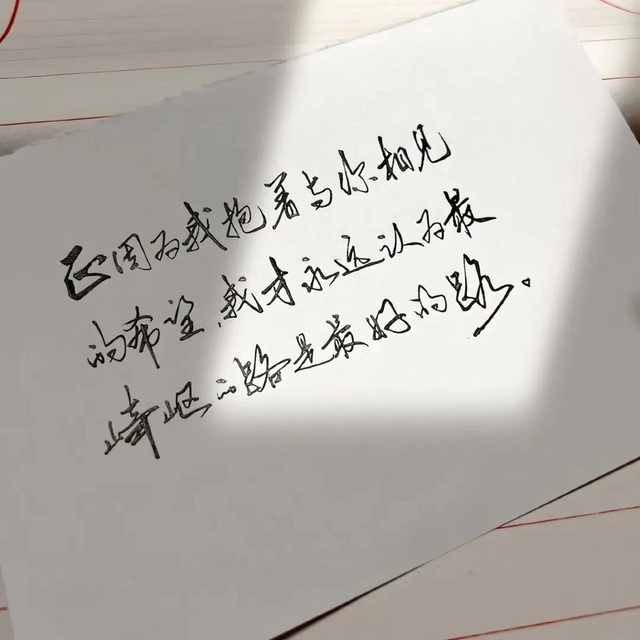 正因为我抱着与你相见
的希望,我才永远认为最
崎岖的路是最好的路.